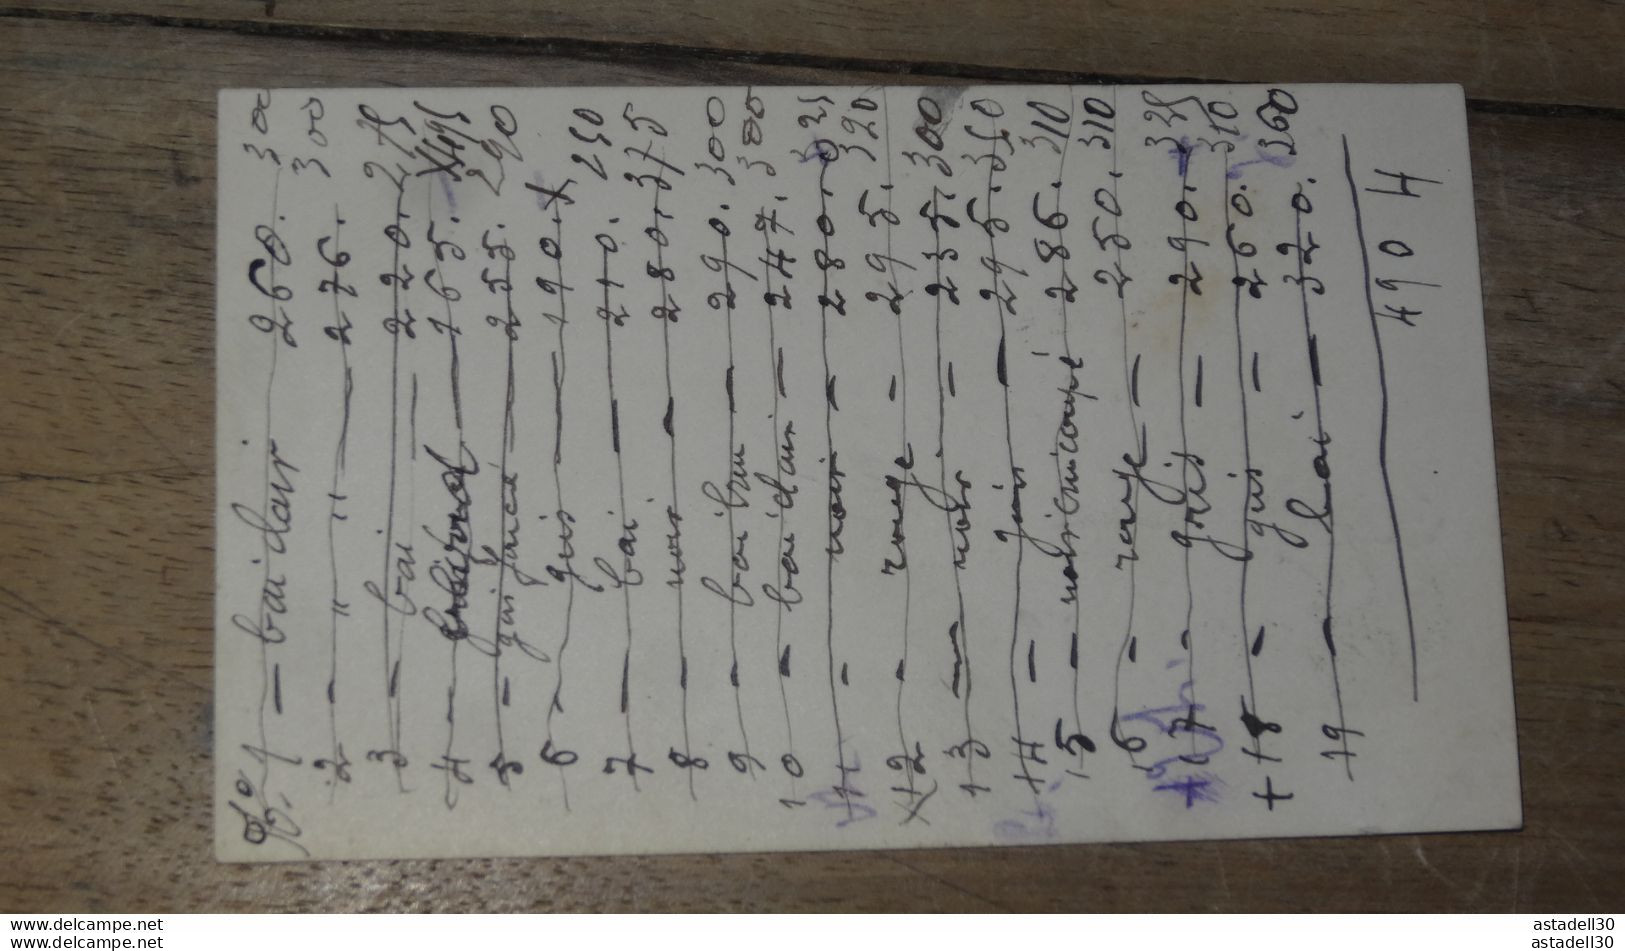 No 1 — bai clair 260. 300
2 - " " — 276. 300
3 — bai — 220. 275
4 - — 165. 195
5 - gris foncé — 255. 290
6 - gris — 190. X 250
7 — bai — 210.
8 - noir - 280. 375
9 - bai brun - 290. 300
10 - bai clair - 247. 300
11 - noir - 280. 325
12 - rouge - 295. 320
13 - noir - 235. 300
14 - gris - 295. 350
15 - noir 286. 310
16 - rouge - 250. 310
+ 17 - gris - 290. 325
+ 18 - gris - 260. 310
19 - bai - 320. 360
4904
www.delcampe.net astadell30
www.delcampe.net astadell30